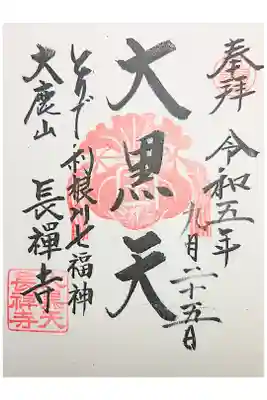 奉拝
令和五年
九月二十五日
大黒天
とりで利根川七福神
大鹿山
長禅寺
大黒天
長禅寺